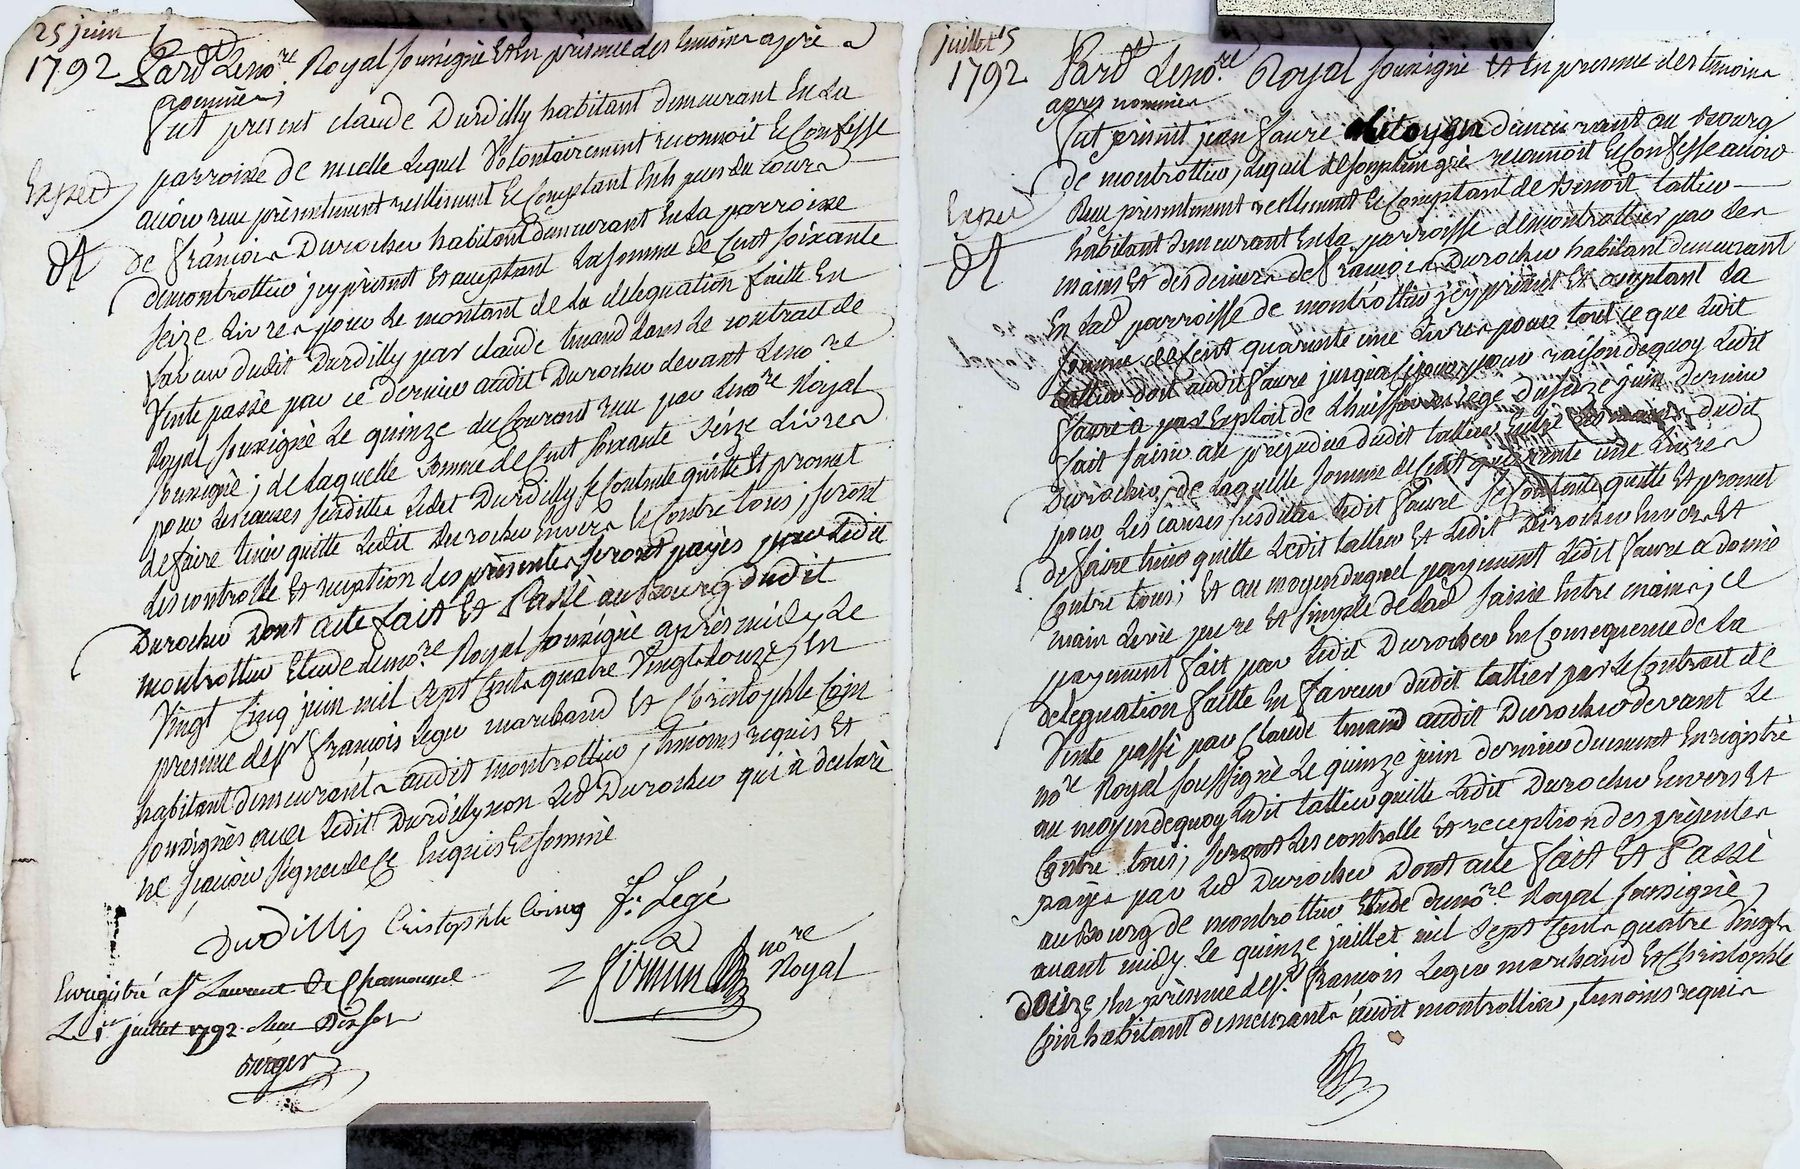 25 juin
1792 Pard.t Leno.re Royal sousigné Et En présence des temoins apré a
nommés;
fut present claude Durdilly habitant demeurant En La
parroisse de nuelle Lequel Volontairement reconnoit Et Confesse
Exped
avoir reçu présentement réellement Et Comptant En Espèces du cours
de françois Durocher habitant demeurant En La parroisse
demontrottier jcy présent Et acceptant La somme de Cent soixante
Seize Livres pour Le montant de La delegation faitte En
faveur dudit Durdilly par claude tenand dans Le contrat de
Vente passé par ce dernier audit Durocher devant Leno.re
Royal sousigné Le quinze du Courant reçu par Leno.re Royal
sousigné; de Laquelle somme de Cent soixante seize Livres
pour Les causes susdittes Ledit Durdilly se Contente quitte Et promet
de faire tenir quitte Ledit Durocher Envers Et Contre tous; seront
Les controlle Et reception des présentes seront payés par Ledit
Durocher Dont acte fait Et Passé au Bourg dudit
montrottier Etude duno.re Royal sousigné après midy Le
Vingt Cinq juin mil sept Cents quatre Vingt douze, En
presence de s.r françois Leger marchand Et Christophle Coin
habitant demeurants audit montrottier, temoins requis Et
sousignés avec Ledit Durdilly non Led Durocher qui à declaré
ne sçavoir signer de Ce Enquis Et sommé
Durdilli Cristophle Coing f. Legé
no.re
Royal
Enregistré a st Laurent de Chamousset
Le 1er juillet 1792. reçu Dix sols
juillet 15
1792 Pard.t Leno.re Royal sousigné Et En presence des temoins
apres nommés
fut présent jean faure citoyen demeurant au Bourg
de montrottier, Lequel de son plein gré reconnoit Et Confesse avoir
Exped
Reçu présentement reellement Et Comptant de Benoit tallier
habitant demeurant En La parroisse demontrottier par les
mains Et des deniers de françois Durocher habitant demeurant
En Lad parroisse de montrottier jcy présent Et acceptant La
somme de Cent quarante une Livres pour tout ce que Ledit
tallier doit audit faure jusqu'à ce jour, pour raison de quoy Ledit
faure à par Exploit de Lhuissier Lege du seize juin dernier
fait saisir au prejudice dudit tallier Entre Les mains dudit
Durocher, de Laquelle somme de Cent quarante une Livres
pour Les causes susdittes Ledit faure se Contente quitte Et promet
de faire tenir quitte Ledit tallier Et Ledit Durocher Envers Et
Contre tous; Et au moyen duquel payement Ledit faure a donné
main Levée pure Et simple de Lad saisie Entre mains; ce
payement fait par Ledit Durocher En Consequence de La
delegation faitte En faveur dudit tallier par Le Contrat de
Vente passé par Claude tenand audit Durocher devant Le
no.re Royal soussigné Le quinze juin dernier duement Enregistré
au moyen de quoy Ledit tallier quitte Ledit Durocher Envers Et
Contre tous; seront Les controlle Et reception des présentes
payés par Led Durocher Dont acte fait Et Passé
au Bourg de montrottier Etude duno.re Royal sousigné
avant midy Le quinze juillet mil sept Cents quatre Vingt
Douze, En présence de s.r françois Leger marchand Et Christophle
Coin habitant demeurants audit montrottier, temoins requis